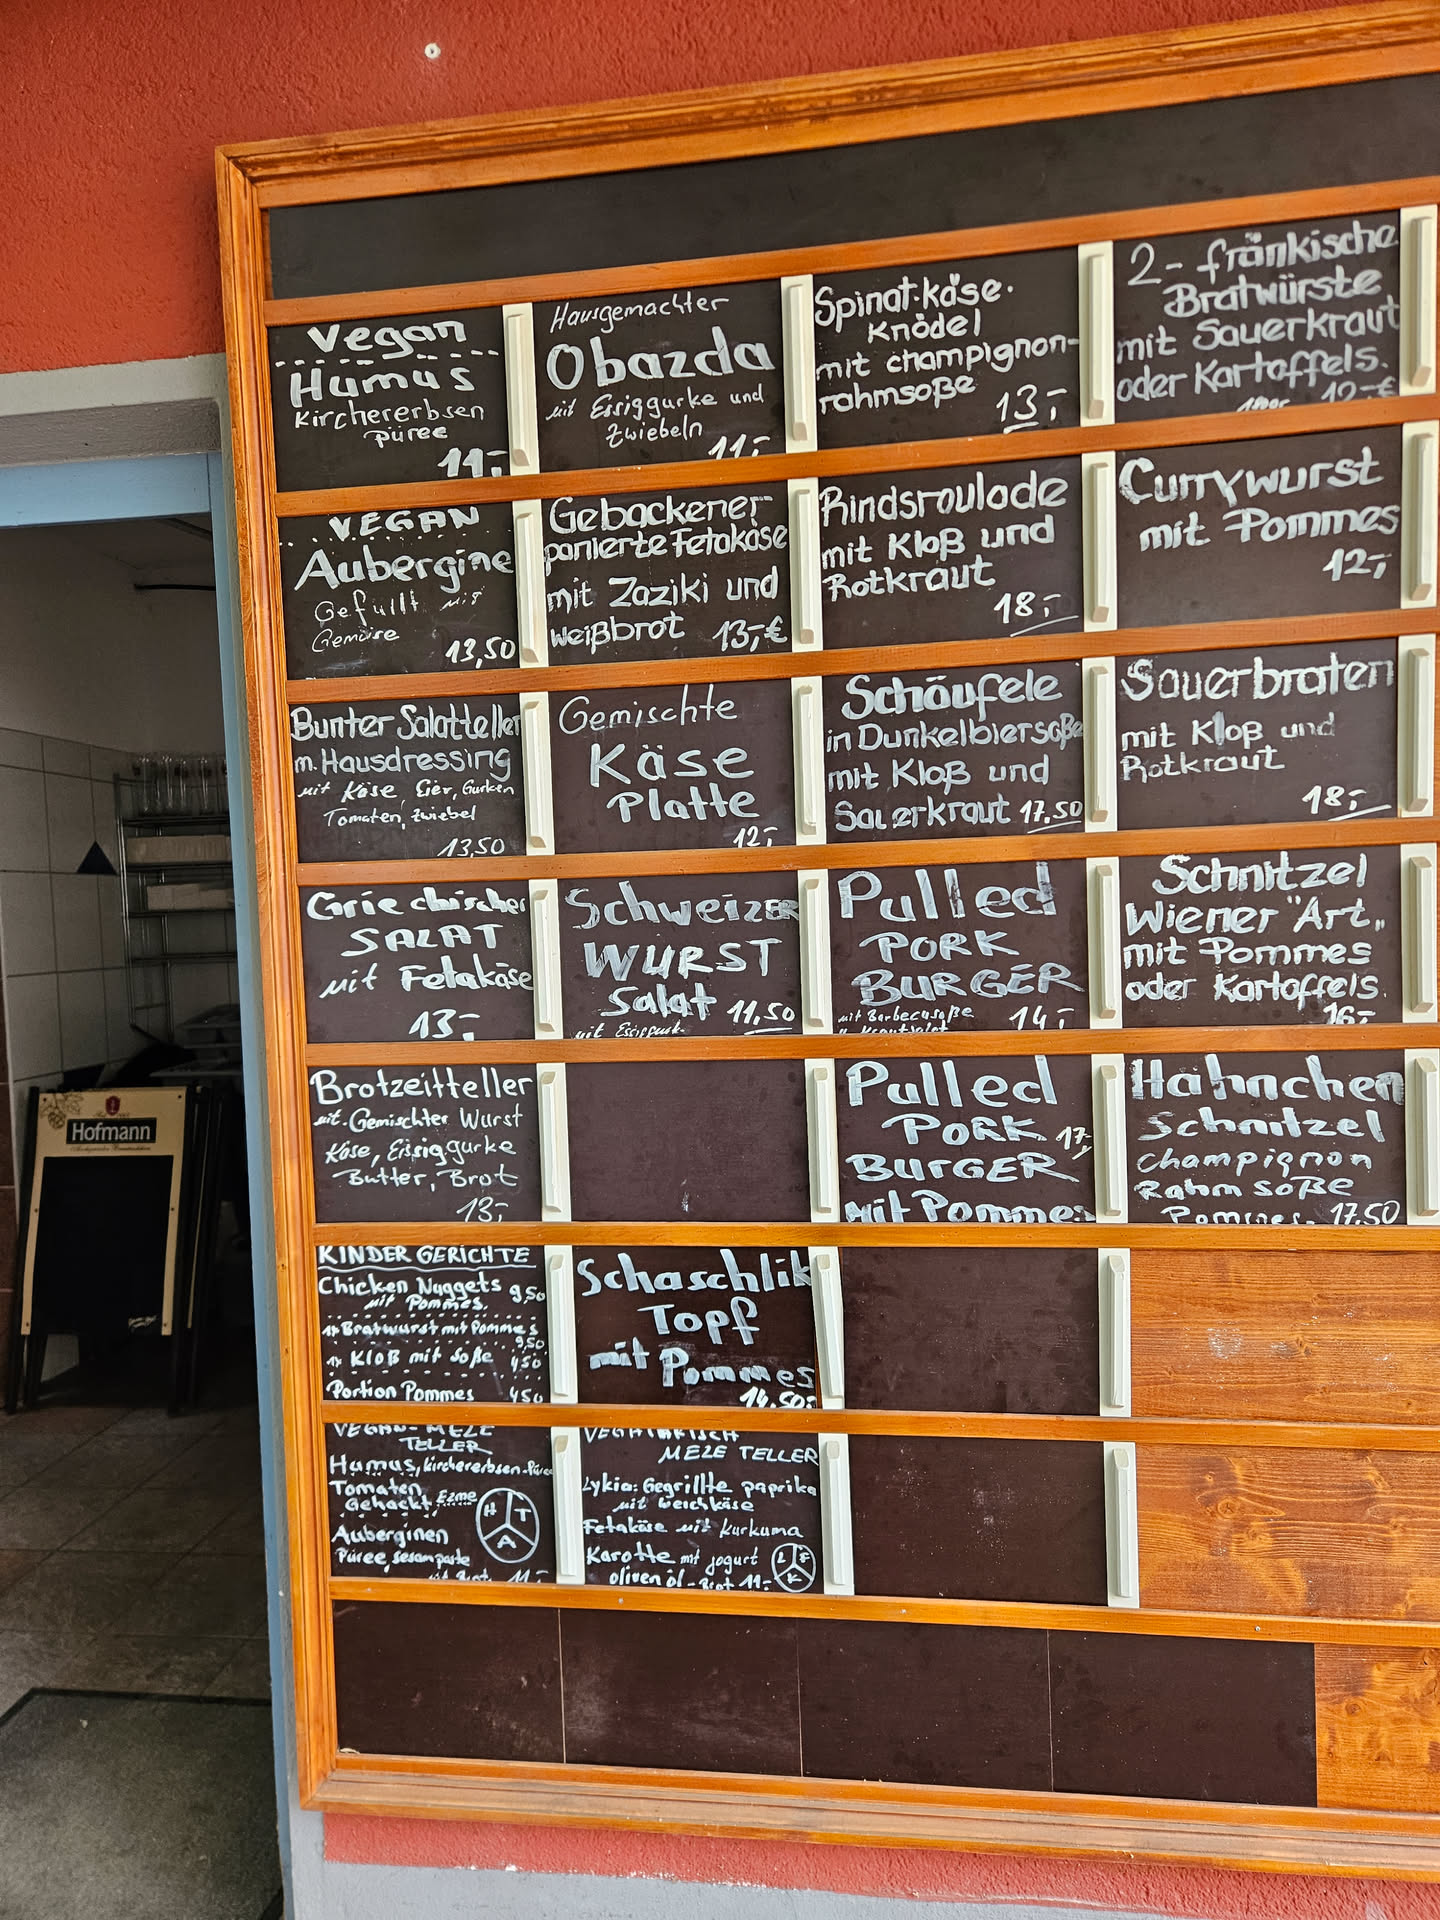 Vegan
Humus
Kirchererbsen
püree
11,-
Hausgemachter
Obazda
mit Essiggurke und
Zwiebeln
11,-
Spinat-käse-
Knödel
mit champignon-
rahmsoße
13,-
2- fränkische
Bratwürste
mit Sauerkraut
oder Kartoffels.
12,-€
VEGAN
Aubergine
Gefüllt mit
Gemüse
13,50
Gebackener
panierte Fetakäse
mit Zaziki und
weißbrot 13,-€
Rindsroulade
mit Kloß und
Rotkraut
18,-
Currywurst
mit Pommes
12,-
Bunter Salatteller
m. Hausdressing
mit Käse, Eier, Gurken
Tomaten, Zwiebel
13,50
Gemischte
Käse
Platte
12,-
Schäufele
in Dunkelbiersoße
mit Kloß und
Sauerkraut 17,50
Sauerbraten
mit Kloß und
Rotkraut
18,-
Griechischer
SALAT
mit Fetakäse
13,-
Schweizer
WURST
Salat 11,50
mit
Pulled
PORK
BURGER
mit Barbecusoße
14,-
Schnitzel
Wiener "Art"
mit Pommes
oder Kartoffels.
16,-
Brotzeitteller
mit Gemischter Wurst
Käse, Essiggurke
Butter, Brot
13,-
Pulled
PORK 17,-
BURGER
mit Pommes
Hähnchen
Schnitzel
Champignon
Rahm soße
Pommes. 17,50
KINDER GERICHTE
Chicken Nuggets 9,50
mit Pommes.
1x Bratwurst mit Pommes
9,50
1x Kloß mit Soße 4,50
Portion Pommes 4,50
Schaschlik
Topf
mit Pommes
14,50,-
VEGAN- MEZE
TELLER
Humus, Kirchererbsen-Püree
Tomaten
Gehackt, Ezme
H T
A
Auberginen
Püree, sesampaste
mit Brot 11,-
VEGITARISCH
MEZE TELLER
Lykia: Gegrillte paprika
mit Weichkäse
Fetakäse mit Kurkuma
Karotte mit jogurt
oliven öl - Brot 11,-
L F
K
Hofmann